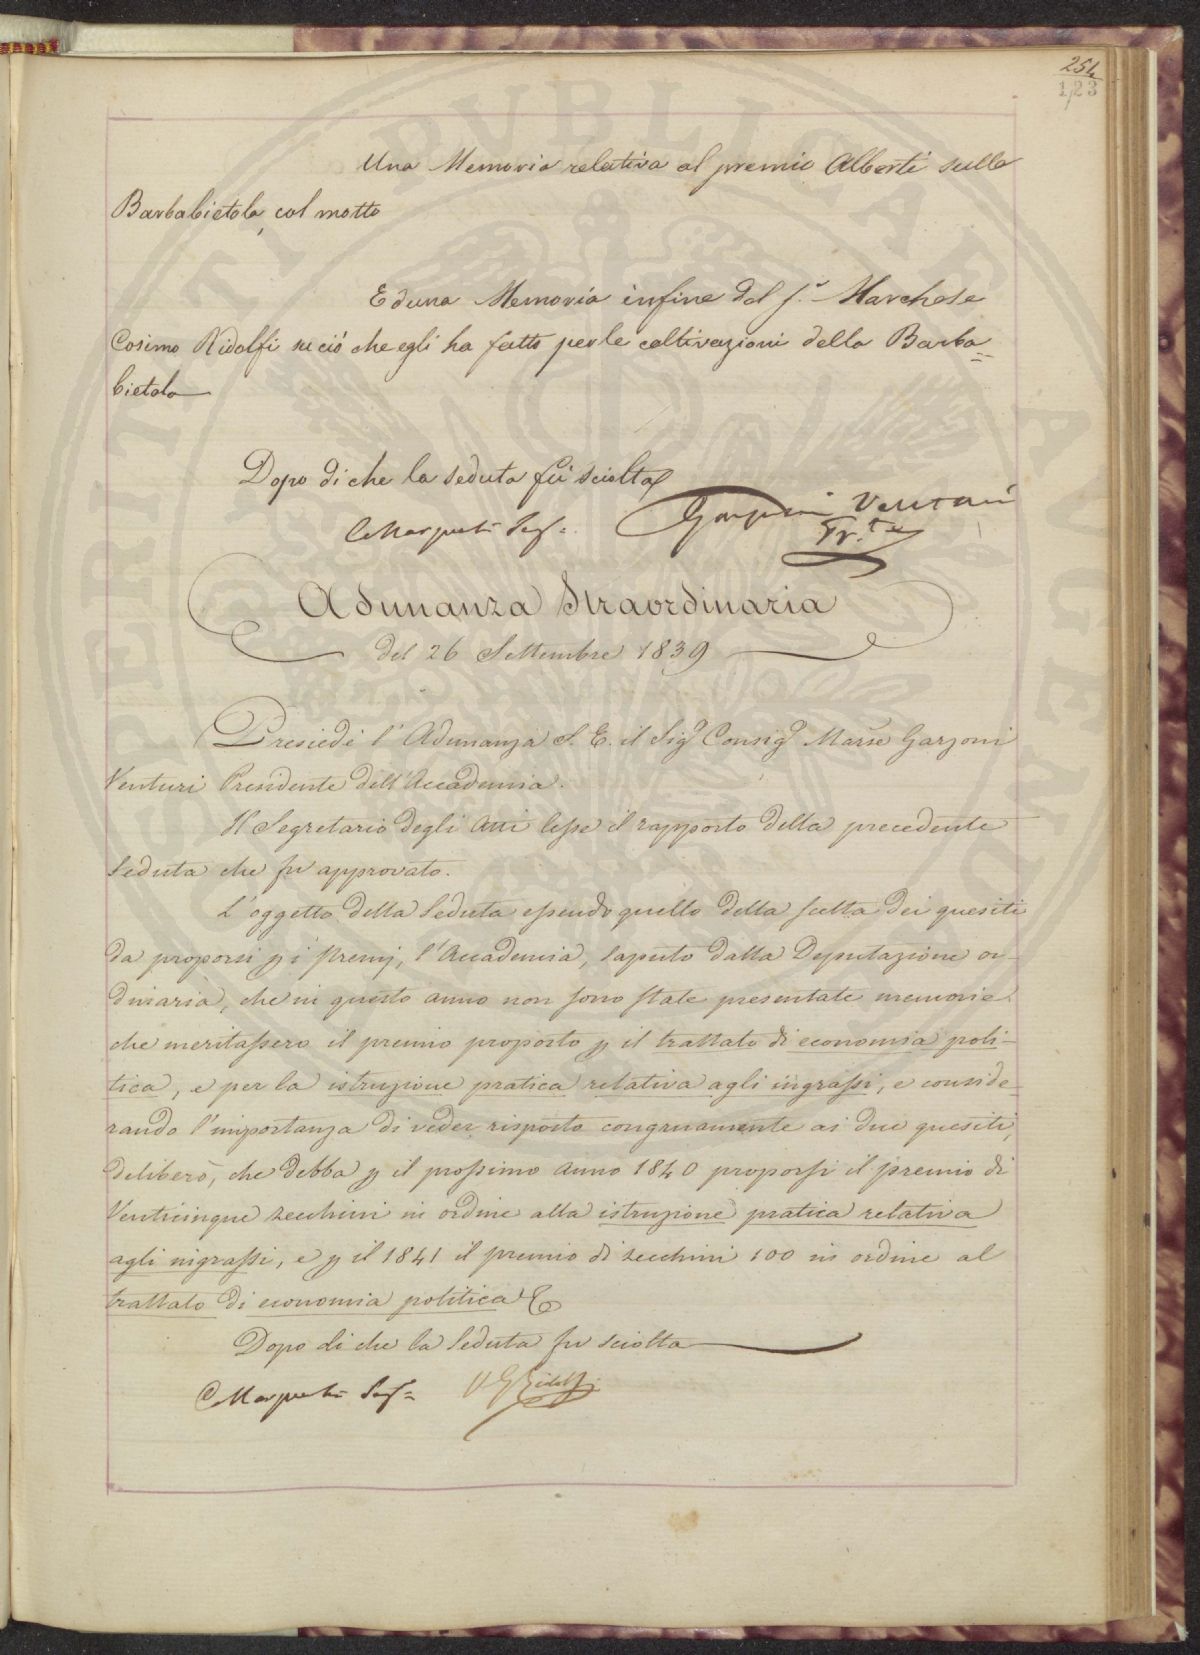 254
123
Una Memoria relativa al premio Alberti sulla
Barbabietola, col motto
Ed una Memoria infine del S.r Marchese
Cosimo Ridolfi su ciò che egli ha fatto per le coltivazioni della Barba=
bietola
Dopo di che la seduta fù sciolta
Garzoni Venturi
Pr.te
Seg.=
Adunanza Straordinaria
del 26 Settembre 1839
Presiedè l'Adunanza S. E. il Sigr Consigr Marse Garzoni
Venturi Presidente dell'Accademia.
Il Segretario degli Atti lesse il rapporto della precedente
Seduta che fu approvato.
L'oggetto della Seduta essendo quello della scelta dei quesiti
da proporsi p i premj, l'Accademia, saputo dalla Deputazione or-
dinaria, che in questo anno non sono state presentate memorie
che meritassero il premio proposto p il trattato di economia poli-
tica, e per la istruzione pratica relativa agli ingrassi, e conside-
rando l'importanza di veder risposto congruamente ai due quesiti,
deliberò, che debba p il prossimo anno 1840 proporsi il premio di
Venticinque zecchini in ordine alla istruzione pratica relativa
agli ingrassi, e p il 1841 il premio di zecchini 100 in ordine al
trattato di economia politica
Dopo di che la Seduta fu sciolta
Seg.=